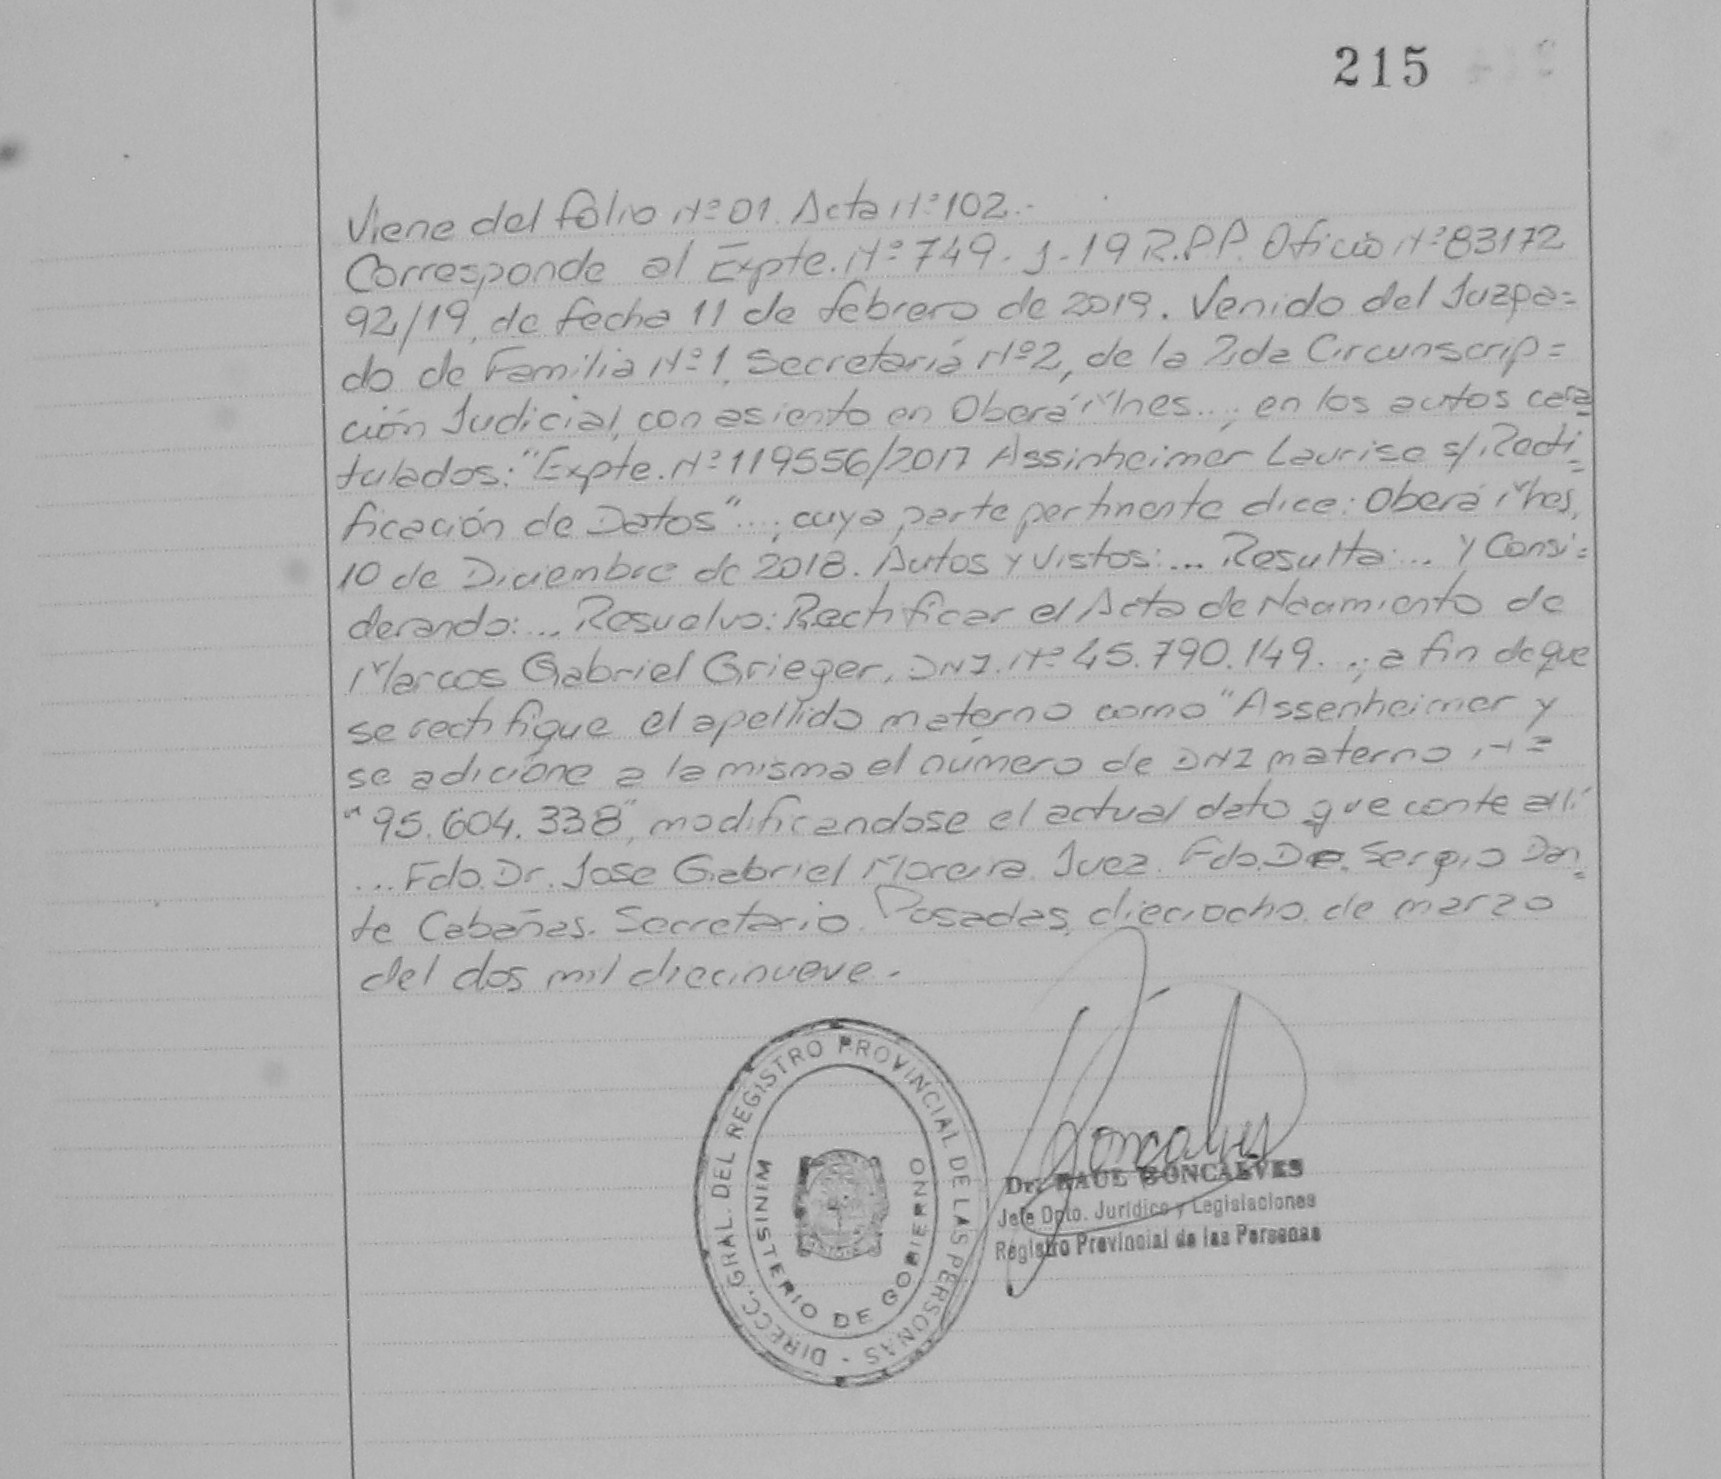 215
Viene del folio Nº 01. Acta Nº 102.-
Corresponde al Expte. Nº 749-J-19 R.P.P. Oficio Nº 83172
92/19, de fecha 11 de febrero de 2019. Venido del Juzga=
do de Familia Nº 1, Secretaría Nº 2, de la 2da Circunscrip=
ción Judicial, con asiento en Oberá Mnes..., en los autos cara
tulados: "Expte. Nº 119556/2017 Assinheimer Laurise s/. Recti=
ficación de Datos"...; cuya parte pertinente dice: Oberá Mnes,
10 de Diciembre de 2018. Autos y Vistos:... Resulta:... Y Consi=
derando:... Resuelvo: Rectificar el Acta de Nacimiento de
Marcos Gabriel Grieger, DNI. Nº 45.790.149. .; a fin de que
se rectifique el apellido materno como "Assenheimer y
se adicione a la misma el número de DNI materno
"95.604.338", modificandose el actual dato que conte allí
... Fdo. Dr. Jose Gabriel Moreira. Juez. Fdo. Dr. Sergio Dan=
te Cabañas. Secretario. Posadas, dieciocho de marzo
del dos mil diecinueve.
DIRECC. GRAL. DEL REGISTRO PROVINCIAL DE LAS PERSONAS -
MINISTERIO DE GOBIERNO
Goncalves
Dr. RAUL GONCALVES
Jefe Dpto. Jurídico y Legislaciones
Registro Provincial de las Personas